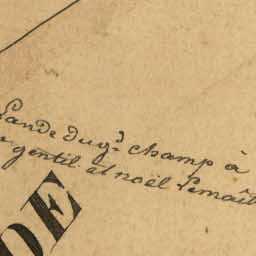 Lande du g.d champ à
gentil et noël Lemaît
DE